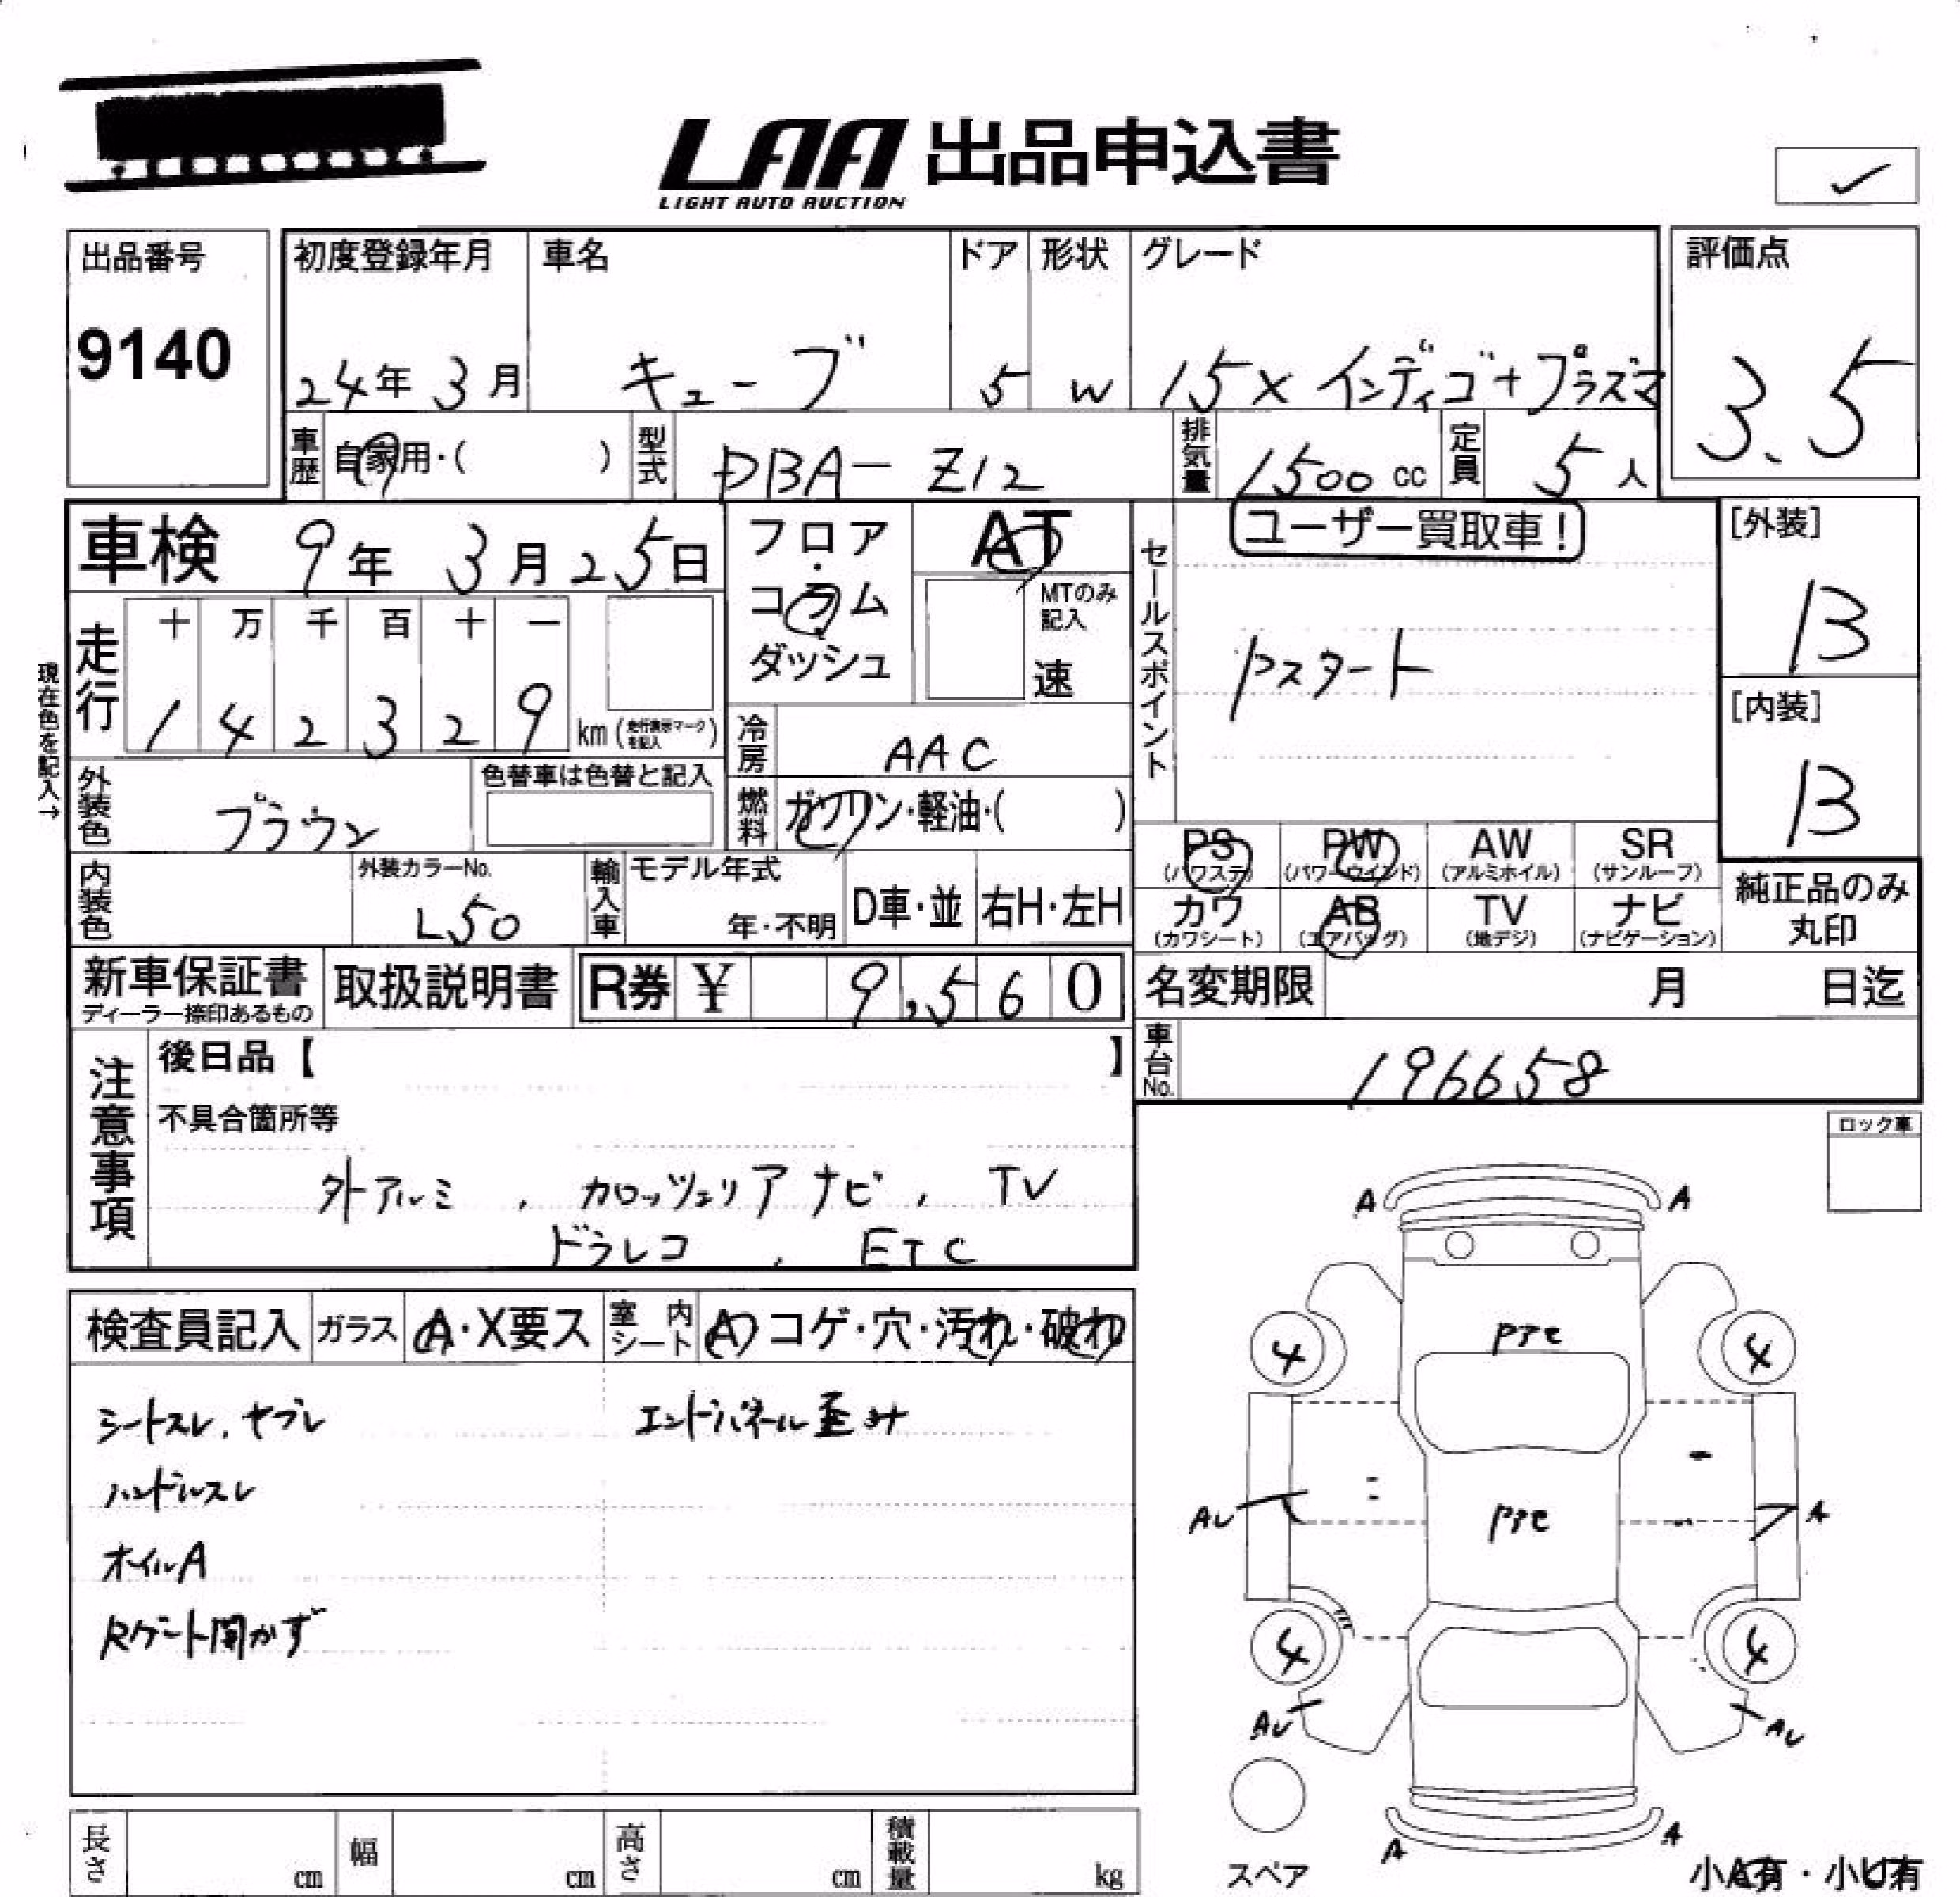 LAA 出品申込書
LIGHT AUTO AUCTION
出品番号
9140
初度登録年月
24年 3月
車名
キューブ
ドア
5
形状
W
グレード
15X インディゴ+プラズマ
評価点
3.5
車歴 自家用・( )
型式 DBA- Z12
排気量 1500 cc
定員 5人
車検 9年 3月 25日
フロア・コラム
ダッシュ
AT
MTのみ記入
速
走行
十 万 千 百 十 一
1 4 2 3 2 9 km (走行表示マークを記入)
現在色を記入→
冷房 AAC
外装色 ブラウン
色替車は色替と記入
燃料 ガソリン・軽油・( )
内装色
外装カラーNo.
L50
輸入車 モデル年式
年・不明
D車・並
右H・左H
セールスポイント
ユーザー買取車!
Pスタート
[外装]
B
[内装]
B
PS
(パワステ)
PW
(パワーウインド)
AW
(アルミホイル)
SR
(サンルーフ)
カワ
(カワシート)
AB
(エアバッグ)
TV
(地デジ)
ナビ
(ナビゲーション)
純正品のみ
丸印
新車保証書
ディーラー捺印あるもの
取扱説明書
R券 ¥ 9,560
名変期限 月 日迄
車台No. 196658
注意事項
後日品【 】
不具合箇所等
外アルミ , カロッツェリア ナビ , TV
ドラレコ , ETC
ロック車
検査員記入 ガラス A・X要ス
室内シート A コゲ・穴・汚れ・破れ
シートスレ, ヤブレ
エンドパネル歪み
ハンドルスレ
オイルA
Rゲート開かず
A A
4 4
AU A
4 4
AU AU
A A
スペア
小A有・小U有
長さ cm
幅 cm
高さ cm
積載量 kg